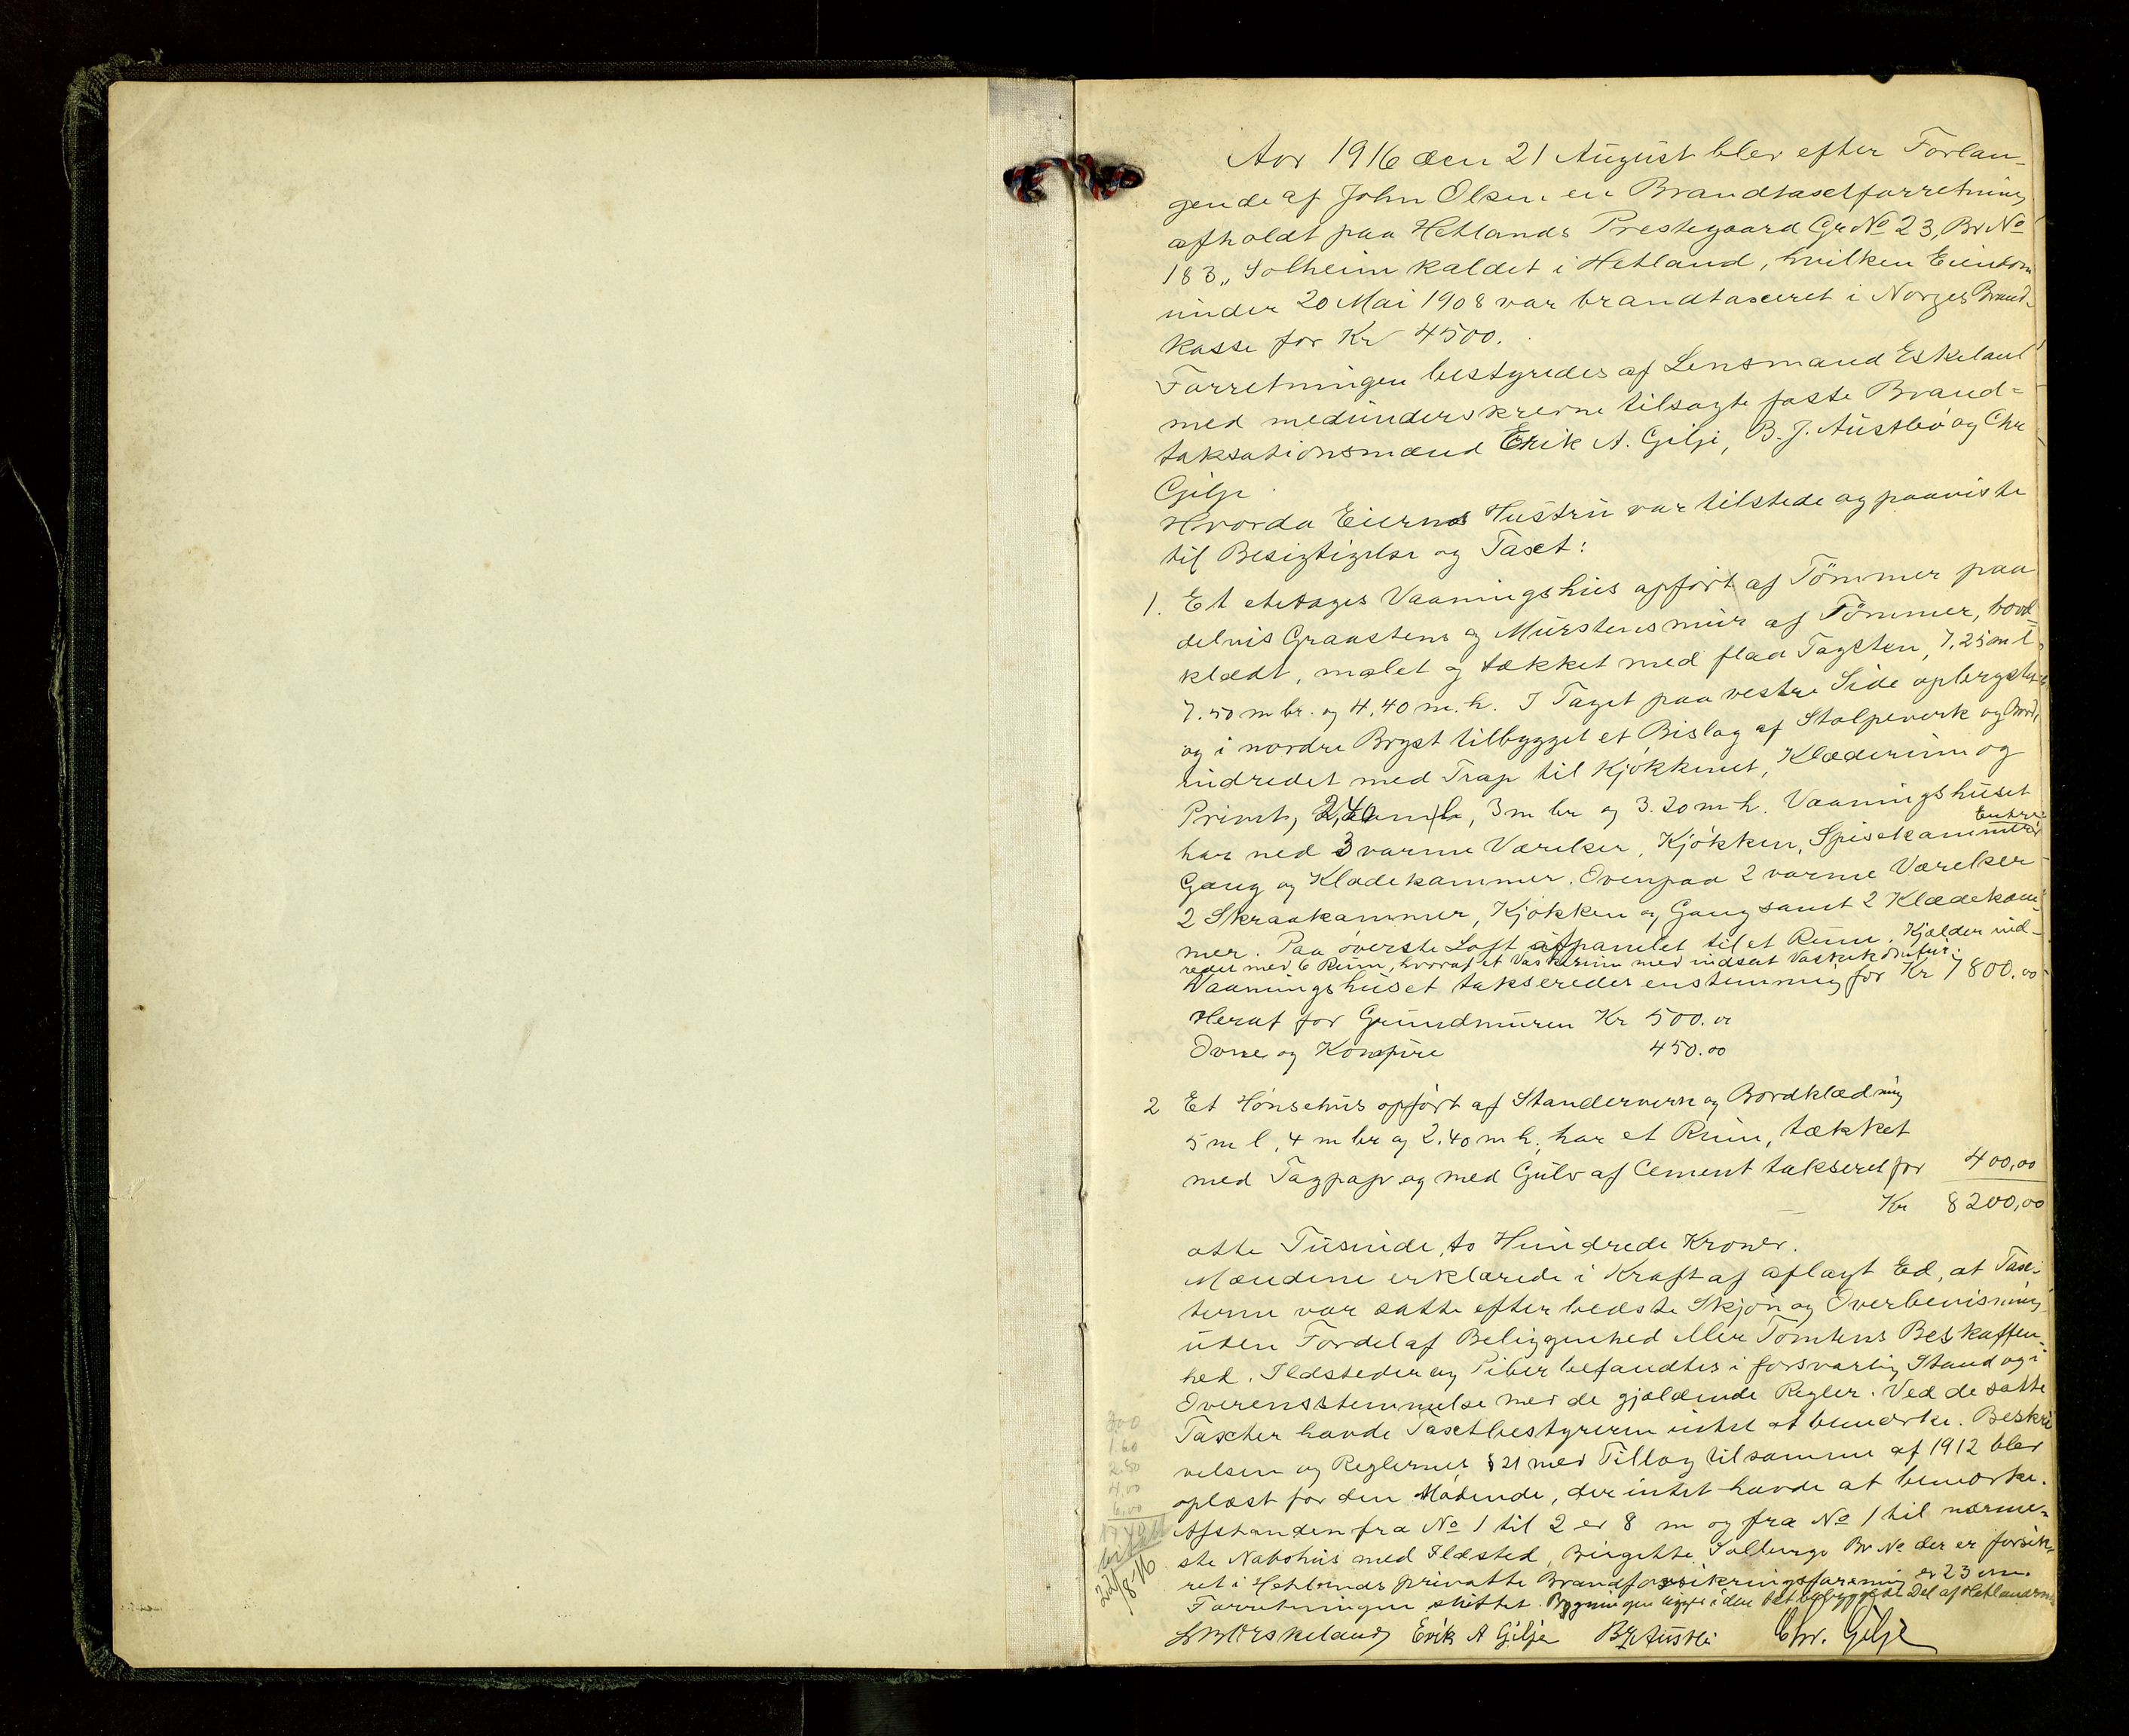 Aar 1916 den 21 August blev efter Forlan-
gende af John Olsen en Brandtaxtforretning
afholdt paa Hetlands Prestegaard Gr No 23, Br No
183 „Solheim kaldet i Hetland, hvilken Eiendom
under 20 Mai 1908 var brandtaxeret i Norges Brand-
kasse for Kr 4500.
Forretningen bestyredes af Lensmand Eskeland
med medunderskrevne tilsagte faste Brand-
taksationsmænd Erik A. Gilje, B. J. Austbø og Chr
Gilje.
Hvorda Eierns Hustru var tilstede og paaviste
til Besigtigelse og Taxt:
1. Et etetages Vaaningshus opført af Tömmer paa
delvis Graastens og Murstensmur af Tömmer, bord-
klædt, malet og tækket med flad Tagsten, 7,25 m l
7.50 m br. og 4,40 m. h. I Taget paa vestre Side opbrygstet
og i nordre Bryst tilbygget et Bislag af Stolpeverk og Bord,
indredet med Trap til Kjøkkenet, Klæderum og
Privet, 2,40 m l, 3 m br og 3.20 m h. Vaaningshuset
har ned 3 varme Værelser, Kjøkken, Spisekammer Entre
Gang og Klædekammer. Ovenpaa 2 varme Værelser
2 Skraakammer, Kjøkken og Gang samt 2 Klædekam-
mer. Paa øverste Loft afpanelet til et Rum. Kjælder ind-
redet med 6 Rum, hvoraf et Vaskerum med indsat
Vaaningshuset takseredes enstemmig for Kr 7800.00
Heraf for Grundmuren Kr 500.00
Ovne og Komfure 450.00
2 Et Hønsehus opført af Standerverk og Bordklædning
5 m l, 4 m br og 2.40 m h, har et Rum, tækket
med Tagpap og med Gulv af Cement takseret for 400,00
Kr 8200,00
otte Tusinde, to Hundrede Kroner.
Mændene erklærede i Kraft af aflagt Ed, at Tax-
terne var satte efter bedste Skjøn og Overbevisning
uten Fordel af Beliggenhed eller Tomtens Beskaffen-
hed. Ildsteder og Piber befandtes i forsvarlig Stand og i
Overensstemmelse med de gjældende Regler. Ved de satte
Taxter havde Taxtbestyreren intet at bemærke. Beskri
velsen og Reglernes § 21 med Tillæg til samme af 1912 blev
oplæst for den Mødende, der intet havde at bemærke.
Afstanden fra No 1 til 2 er 8 m og fra No 1 til nærme-
ste Nabohus med Ildsted, Birgitte Solberge Br No der er forsik-
ret i Hetlands private Brandforsikringsforening er 23 m.
Forretningen sluttet. Bygningen ligger i den tet bebyggede Del af Hetlandsmarken
Eskeland Erik A Gilje B J Austbø Chr. Gilje
3.00
1.60
2.80
4.00
6.00
22/8-16